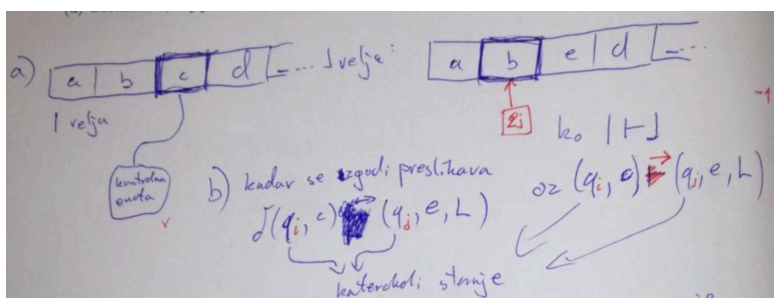 a) a b c d ... velja:
a b e d ...
velja
2j
-1
ko |⊢
kontrolna
enota
b) kadar se zgodi preslikava
oz (qi, c) → (qj, e, L)
δ(qi, c) (qj, e, L)
katerokoli stanje